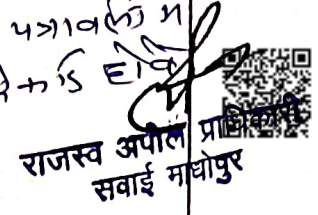 पत्रावली म
राजस्व अपील प्राधिकारी
सवाई माधोपुर